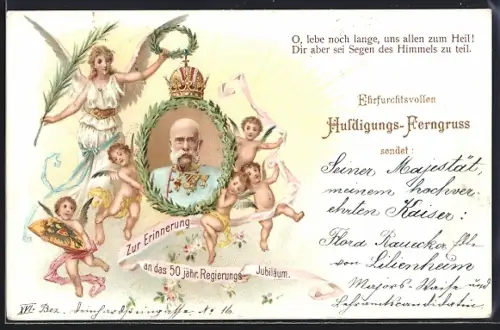 O, lebe noch lange, uns allen zum Heil!
Dir aber sei Segen des Himmels zu teil.
Ehrfurchtsvollen
Huldigungs-Ferngruss
sendet:
Seiner Majestät,
meinem hochver-
ehrten Kaiser:
Flora
von Lilienheim
Majors-Waise und
Lehramtscandidatin
Zur Erinnerung
an das 50 jähr. Regierungs-Jubiläum.
XVI. Bez. No 16.